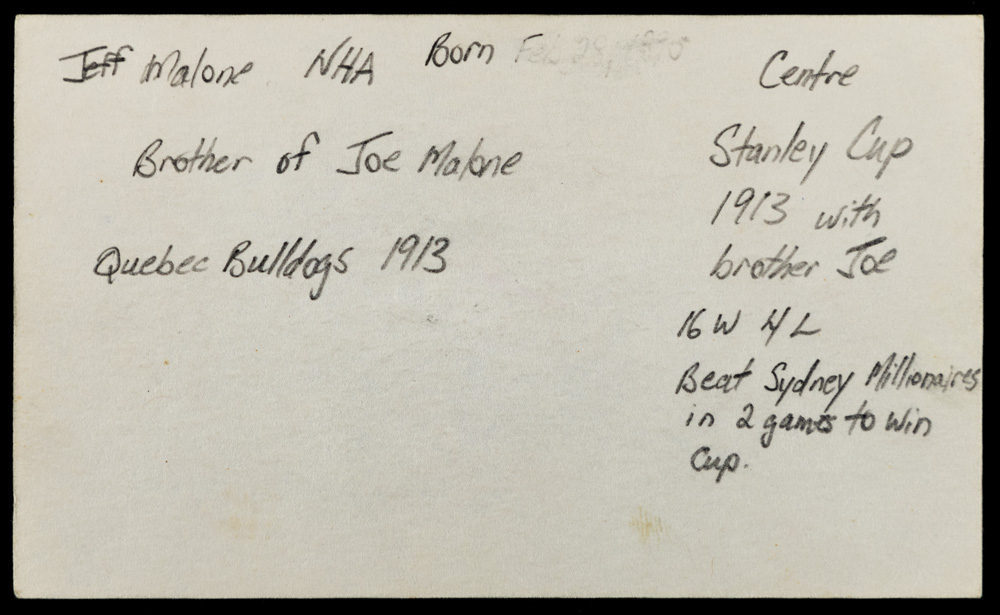 Jeff Malone NHA Born Feb 28, 1890
Brother of Joe Malone
Quebec Bulldogs 1913
Centre
Stanley Cup
1913 with
brother Joe
16 W 4 L
Beat Sydney Millionaires
in 2 games to win
Cup.